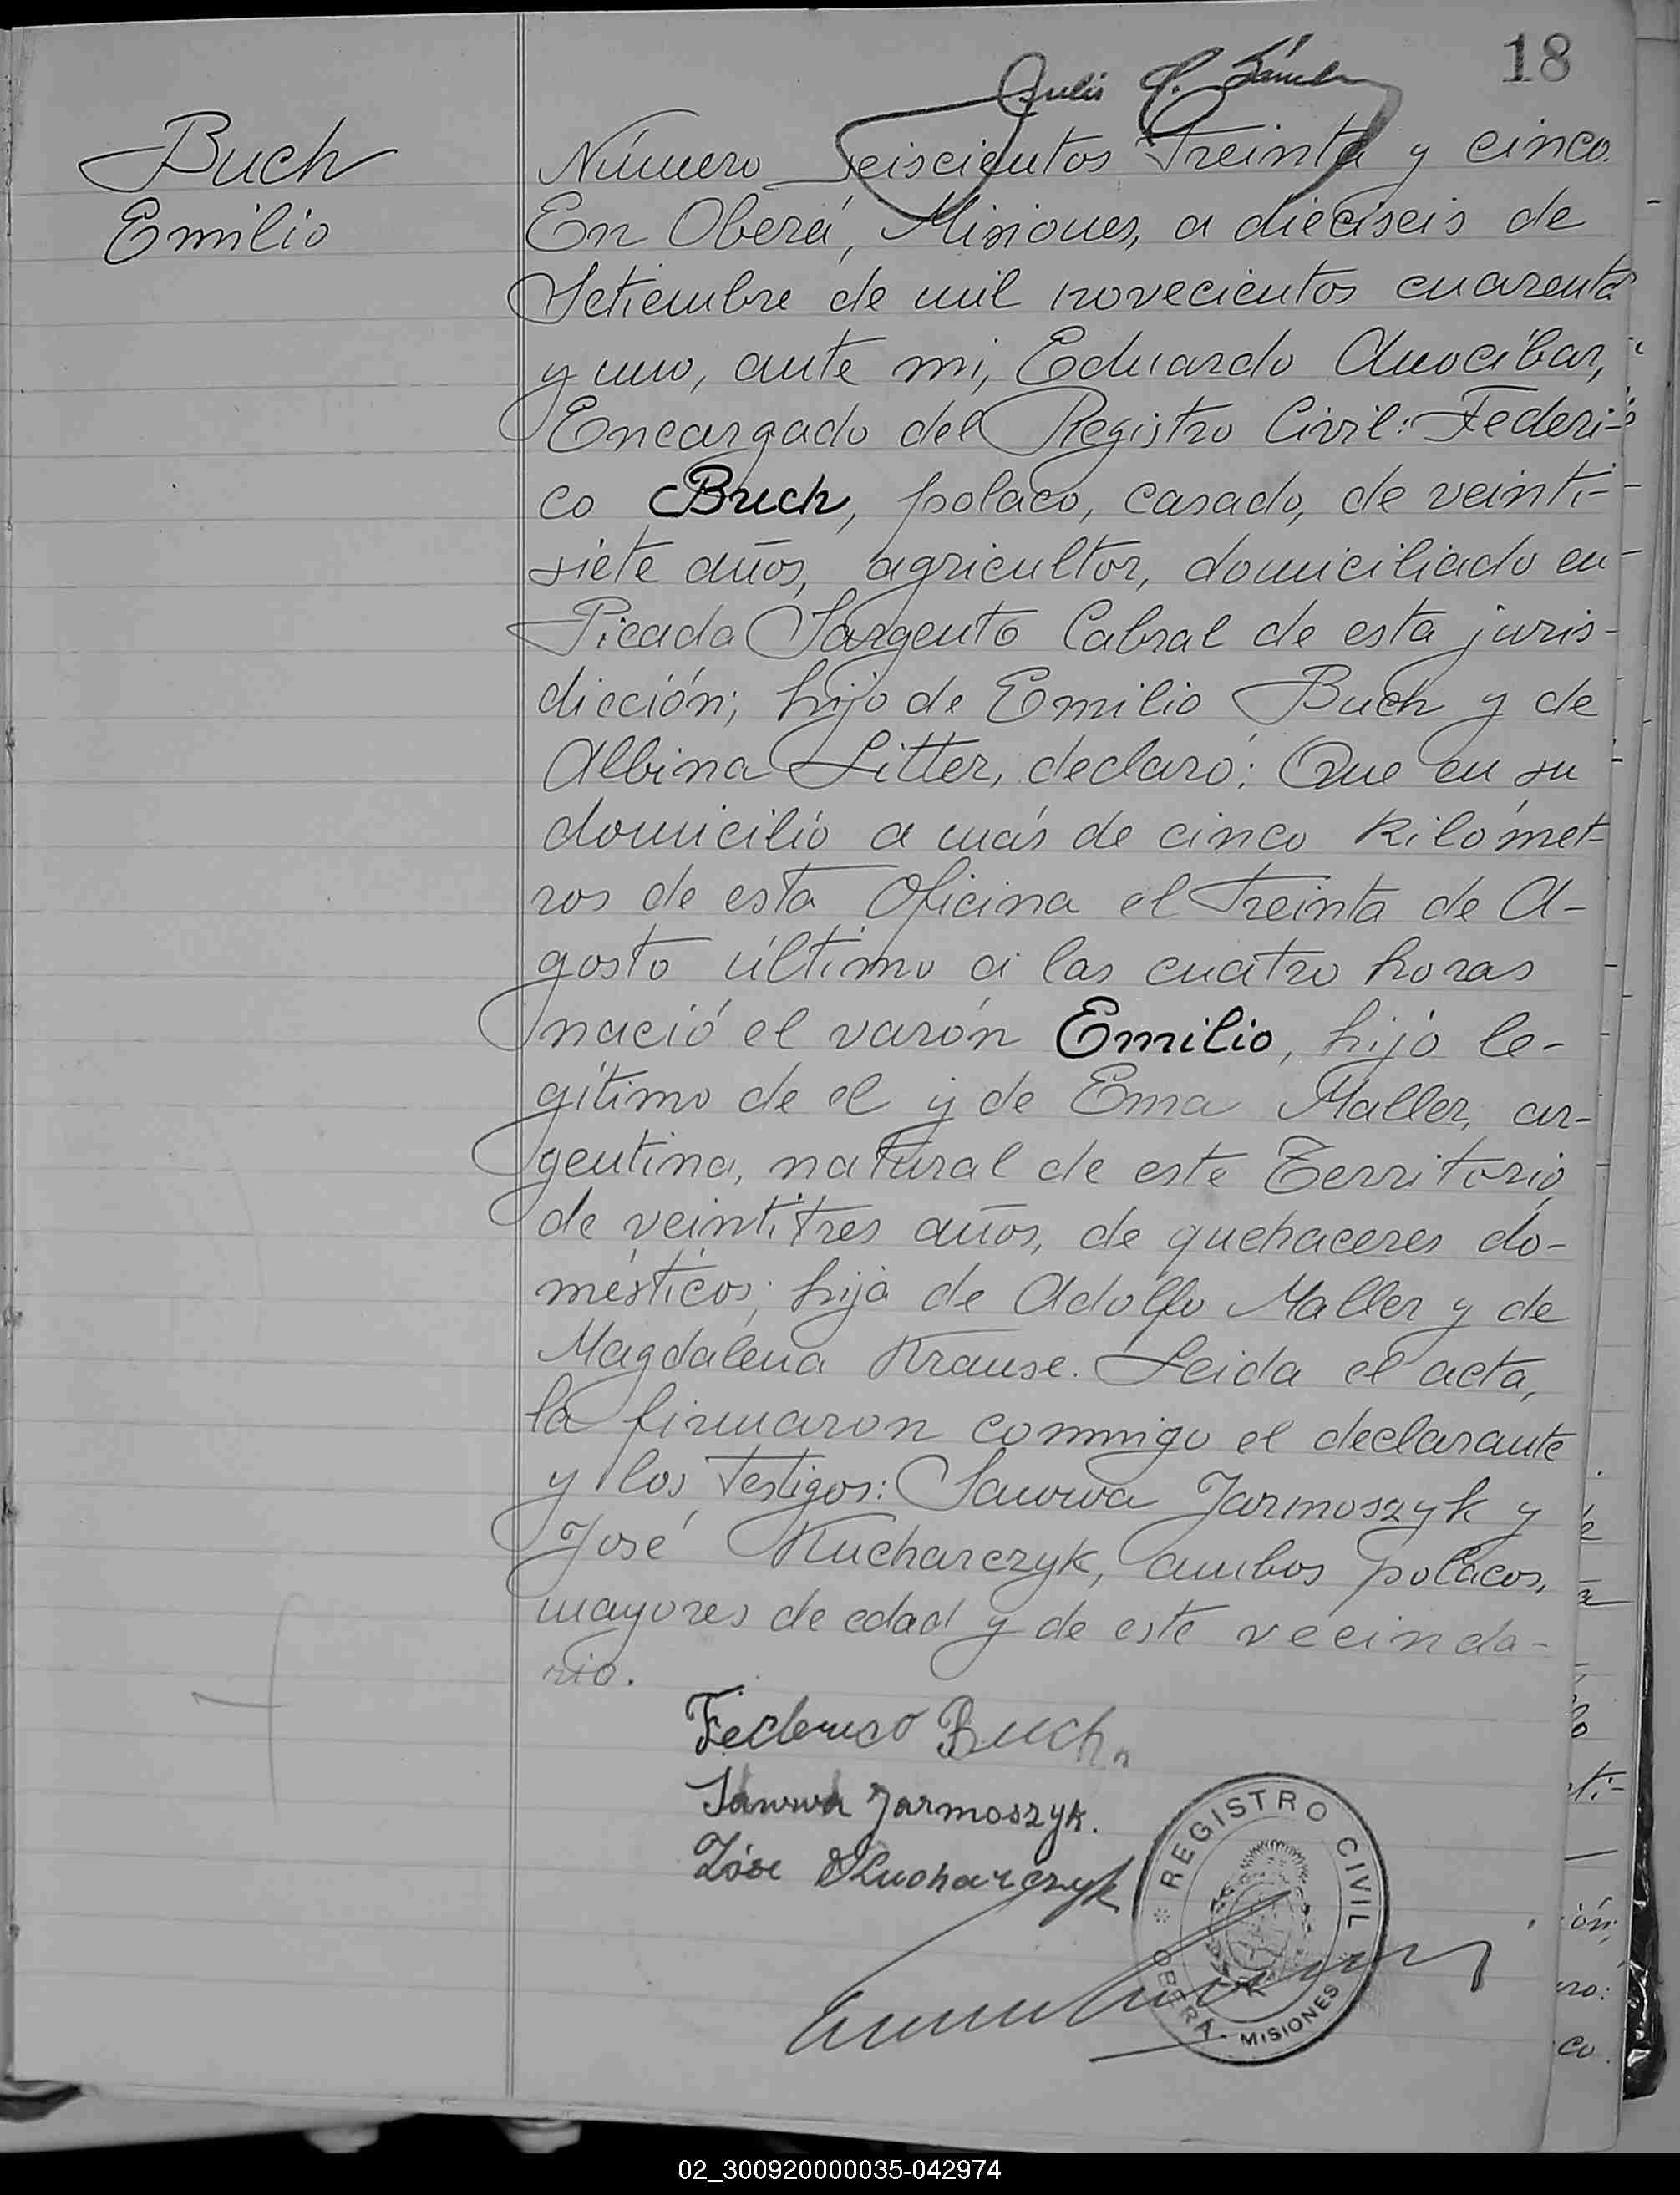 18
Buch
Emilio
Número Seiscientos Treinta y cinco.
En Oberá, Misiones, a dieciseis de
Setiembre de mil novecientos cuarenta
y uno, ante mi, Eduardo Anocibar,
Encargado del Registro Civil: Federi-
co Buch, polaco, casado, de veinti-
siete años, agricultor, domiciliado en
Picada Sargento Cabral de esta juris-
dicción; hijo de Emilio Buch y de
Albina Litter, declaró: Que en su
domicilio a más de cinco kilómet-
ros de esta Oficina el treinta de A-
gosto último a las cuatro horas
nació el varón Emilio, hijo le-
gítimo de el y de Ema Maller, ar-
gentina, natural de este Territorio,
de veintitres años, de quehaceres do-
mésticos; hija de Adolfo Maller y de
Magdalena Krause. Leida el acta,
la firmaron conmigo el declarante
y los testigos: Sawwa Jarmoszyk y
José Kucharczyk, ambos polacos,
mayores de edad y de este vecinda-
rio.
Federico Buch
Sawwa Jarmoszyk.
Jóse Kucharczyk
REGISTRO CIVIL
OBERÁ - MISIONES
02_300920000035-042974